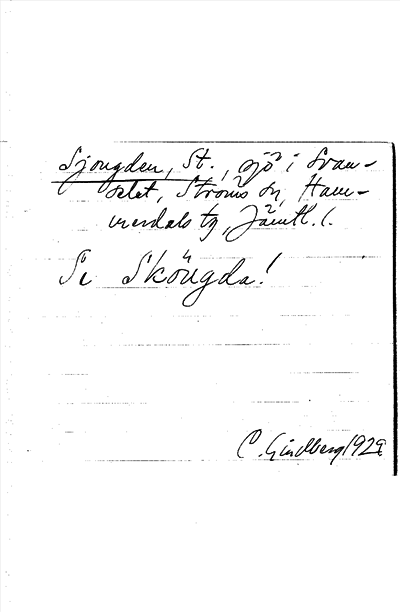 Sjougden, St., sjö i Svan-
selet, Ströms sn, Ham-
merdals tg, Jämtl. l.
Se Sköugda!
C. Lindberg 1929